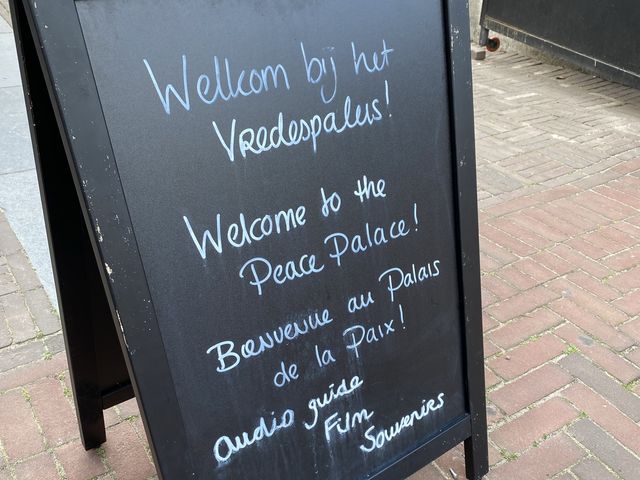 Welkom bij het
Vredespaleis!
Welcome to the
Peace Palace!
Bienvenue au Palais
de la Paix!
audio guide
Film
Souvenirs